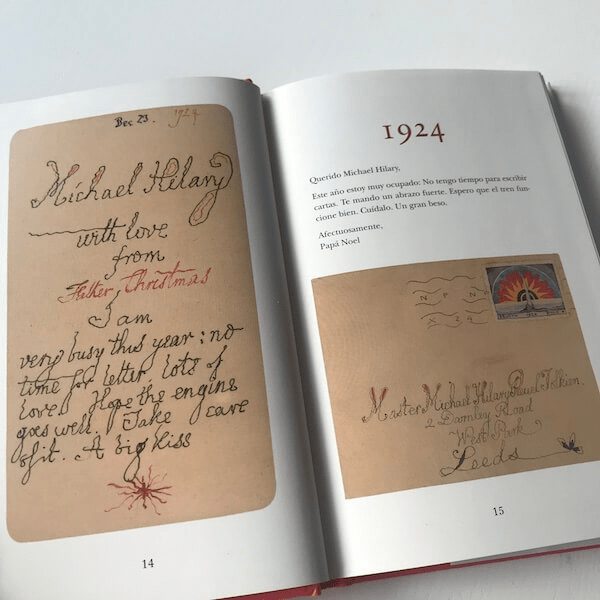 Dec 23. 1924
Michael Hilary
with love
from
Father Christmas
I am
very busy this year; no
time for letter lots of
love. Hope the engine
goes well. Take care
of it. A big kiss
14
1924
Querido Michael Hilary,
Este año estoy muy ocupado: No tengo tiempo para escribir
cartas. Te mando un abrazo fuerte. Espero que el tren fun-
cione bien. Cuídalo. Un gran beso.
Afectuosamente,
Papá Noel
Master Michael Hilary Reuel Tolkien.
2 Darnley Road
West Park
Leeds
15